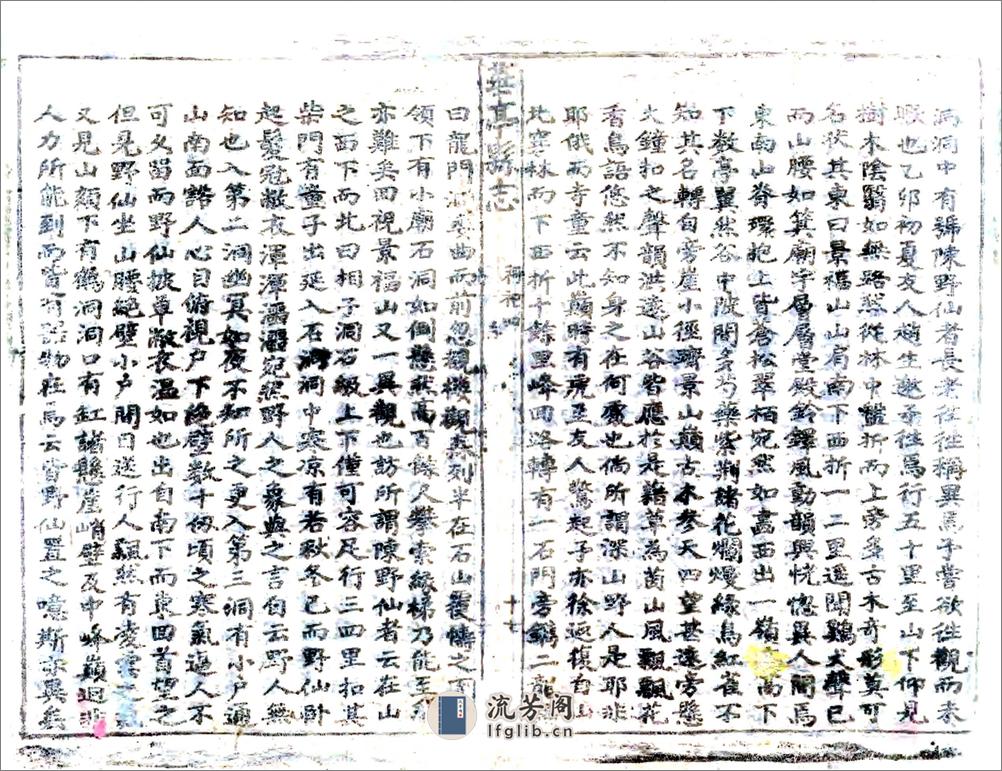 洞洞中有號陳野仙者長老往往稱異焉予嘗欲往觀而未
暇也乙卯初夏友人趙生邀予往焉行五十里至山下仰見
樹木陰翳如無路然從林中盤折而上旁多古木奇形莫可
名狀其東曰景福山山肩南下西折一二里遥聞鷄犬聲已
而山腰如箕廟宇層層堂殿鈴鐸風動韻與恍惚異人間焉
東南山脊環抱上皆蒼松翠栢宛然如畵西出一嶺高下
下数亭翼然谷中陂間多芍藥紫荆諸花爛熳緑鳥紅雀不
知其名轉自旁崖小徑躋景山巔古木参天四望甚遠旁懸
大鐘扣之聲韻洪遠山谷皆應於是藉草為茵山風飄飄花
香鳥語悠然不知身之在何處也倘所謂深山野人是耶非
耶俄而寺童云此巔時有虎至友人驚起予亦徐返復自山
北穿林而下西折十餘里峰回路轉有一石門旁鐫二龍
志
祠祀
十七
曰龍門洞委曲而前忽覩樓觀森列半在石山覆幬之下
領下有小廟石洞如倒懸然高百餘人攀索緣梯乃能至
亦難矣回視景福山又一異觀也訪所謂陳野仙者云在山
之西下而北曰相子洞石級上下僅可容足行三四里扣其
柴門有童子出延入石洞洞中寒凉有若秋冬已而野仙卧
起髮冠敝衣渾渾灝灝宛然野人之象與之言自云野人無
知也入第二洞幽冥如夜不知所之更入第三洞有小户通
山南面豁人心目俯視户下絶壁数十仞頃之寒氣逼人不
可久留而野仙披單敝衣温如也出自南下而東回首望之
但見野仙坐山腰絶壁小户間目送行人飄然有凌雲之氣
又見山頦下有鶴洞洞口有缸諸懸崖峭壁及中峰巔迥非
人力所能到而皆有器物在焉云皆野仙置之噫斯亦異矣
流芳阁
lfglib.cn